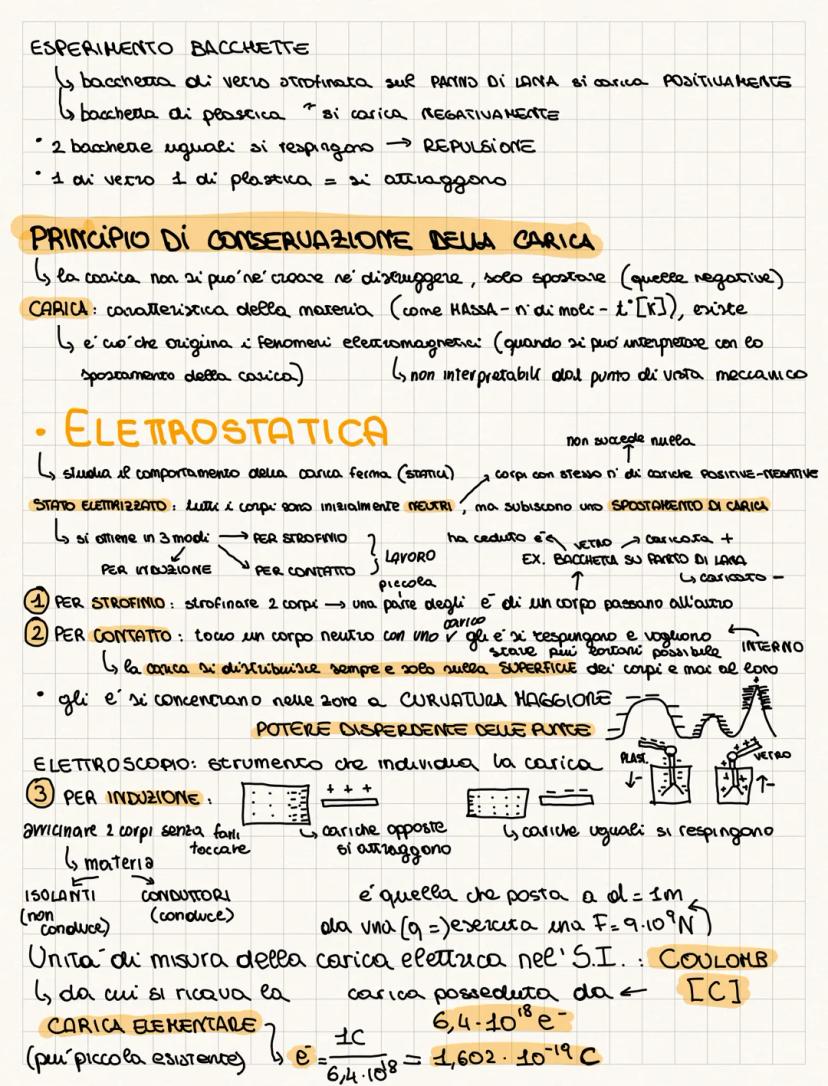 ESPERIMENTO BACCHETTE
↳ bacchetta di vetro strofinata sul PANNO DI LANA si carica POSITIVAMENTE
↳ bacchetta di plastica " si carica NEGATIVAMENTE
• 2 bacchette uguali si respingono → REPULSIONE
• 1 di vetro 1 di plastica = si attraggono
PRINCIPIO DI CONSERVAZIONE DELLA CARICA
↳ la carica non si può nè creare nè distruggere, solo spostare (quelle negative)
CARICA: caratteristica della materia (come MASSA - n° di moli - t°[K]), esiste
↳ è ciò che origina i fenomeni elettromagnetici (quando si può interpretare con lo
spostamento della carica) ↳ non interpretabili dal punto di vista meccanico
• ELETTROSTATICA
non succede nulla
↳ studia il comportamento della carica ferma (STATICA) corpi con stesso n° di cariche POSITIVE-NEGATIVE
STATO ELETTRIZZATO: tutti i corpi sono inizialmente NEUTRI, ma subiscono uno SPOSTAMENTO DI CARICA
↳ si ottiene in 3 modi → PER STROFINIO
PER INDUZIONE PER CONTATTO } LAVORO piccola
ha ceduto e⁻ VETRO → caricata +
EX. BACCHETTA SU PANNO DI LANA
↳ caricato -
① PER STROFINIO: strofinare 2 corpi → una parte degli e⁻ di un corpo passano all'altro
② PER CONTATTO: tocco un corpo neutro con uno carico gli e⁻ si respingono e vogliono
stare più lontani possibile INTERNO
↳ la carica si distribuisce sempre e solo sulla SUPERFICIE dei corpi e mai al loro
• gli e⁻ si concentrano nelle zone a CURVATURA MAGGIORE
POTERE DISPERDENTE DELLE PUNTE
ELETTROSCOPIO: strumento che individua la carica PLAST. ↓- VETRO ↑-
③ PER INDUZIONE: + + +
avvicinare 2 corpi senza farli ↳ cariche opposte ↳ cariche uguali si respingono
toccare si attraggono
↳ materia
ISOLANTI CONDUTTORI è quella che posta a d = 1m
(non conduce) (conduce) da una (q =) esercita una F = 9·10⁹N
Unità di misura della carica elettrica nel' S.I.: COULOMB
↳ da cui si ricava la carica posseduta da ← [C]
CARICA ELEMENTARE 6,4·10¹⁸ e⁻
(più piccola esistente) ↳ e⁻ = 1C / 6,4·10¹⁸ = 1,602·10⁻¹⁹ C